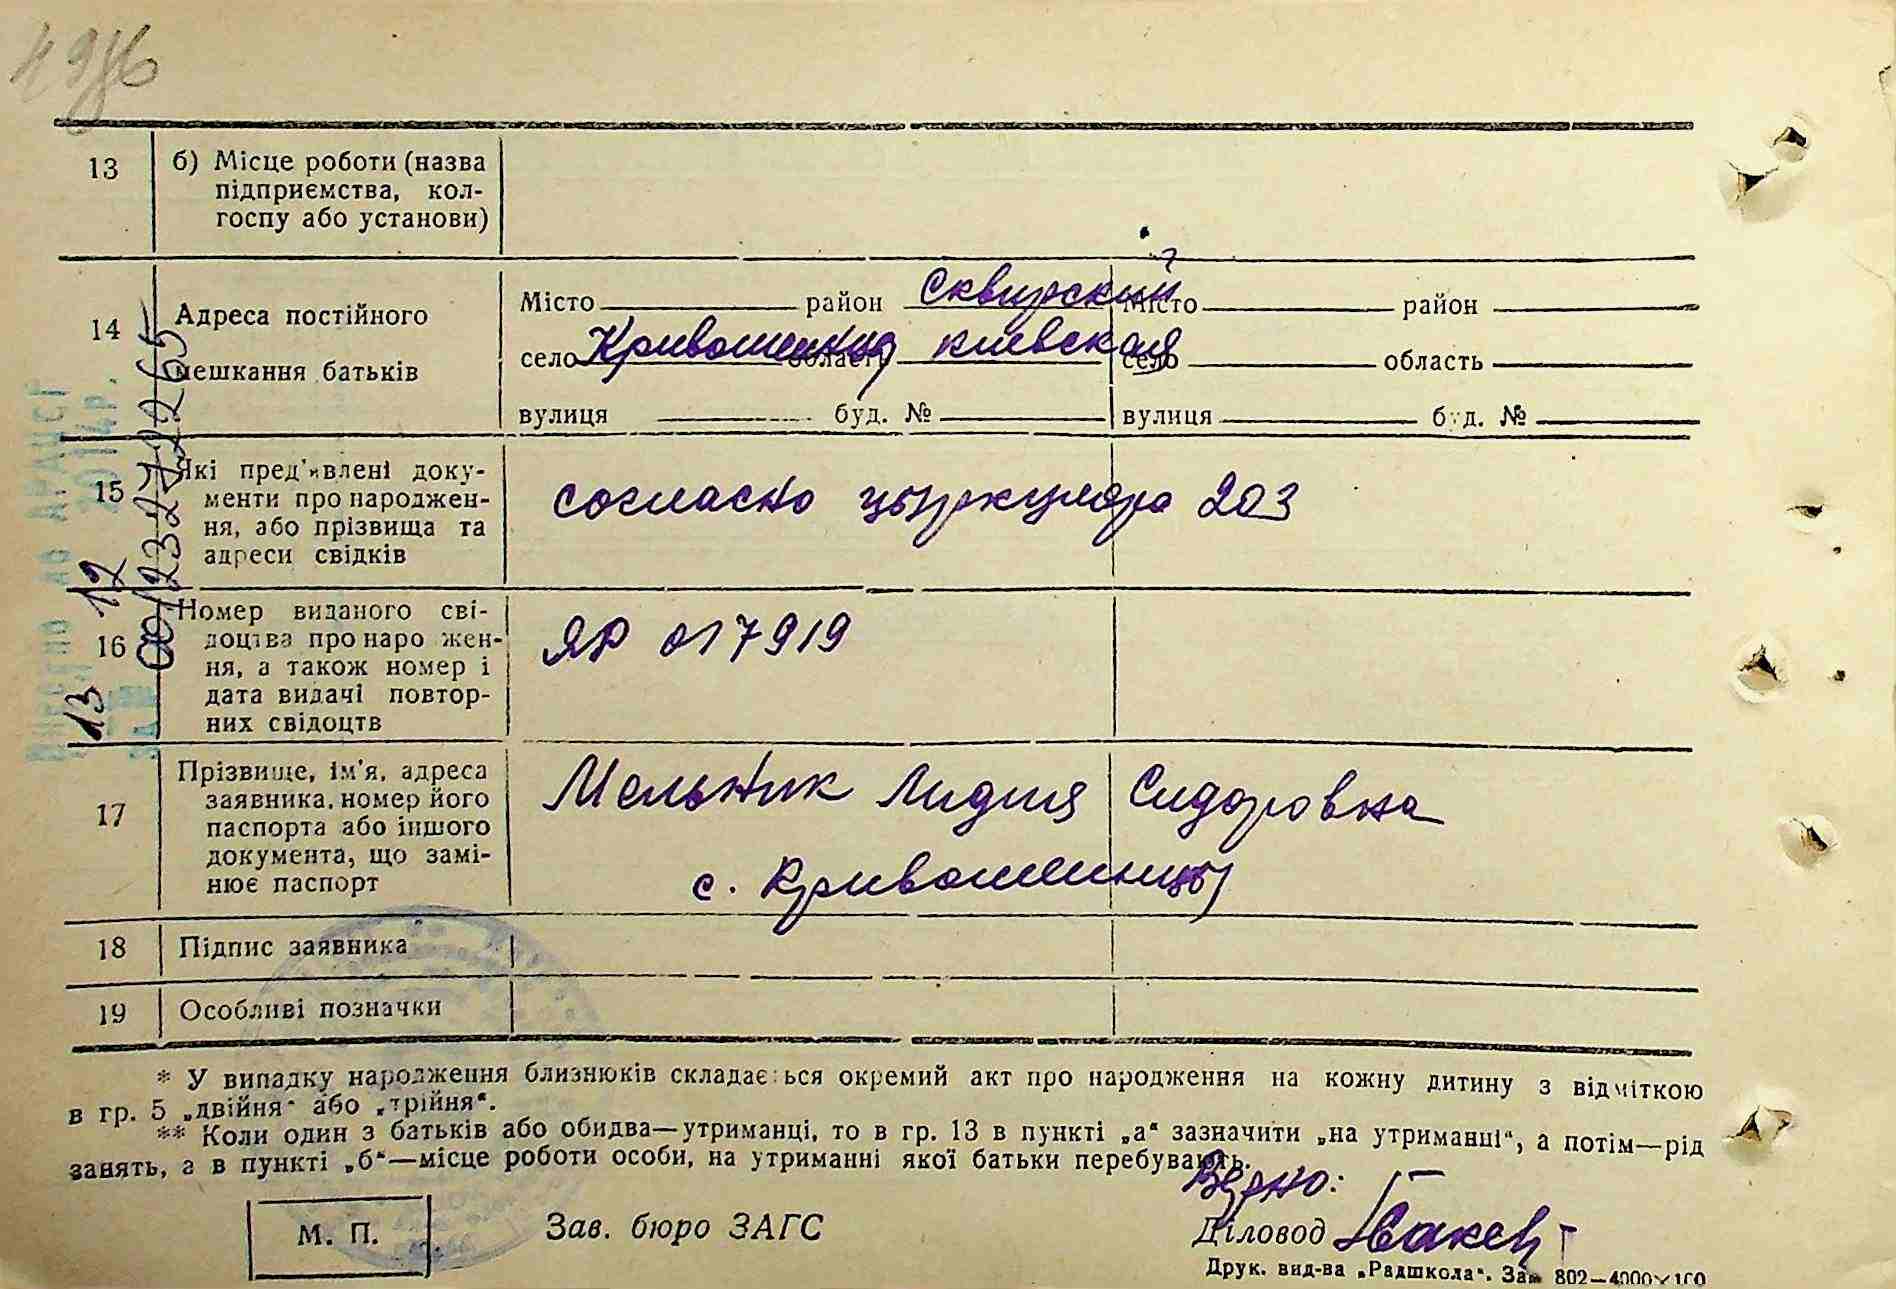 13 б) Місце роботи (назва
підприємства, кол-
госпу або установи)
14 Адреса постійного
мешкання батьків
Місто район Сквирский Місто район
село Кривошеинцы область киевская село область
вулиця буд. № вулиця буд. №
15 Які пред'явлені доку-
менти про народжен-
ня, або прізвища та
адреси свідків
согласно цыркуляра 203
16 Номер виданого сві-
доцтва про народжен-
ня, а також номер і
дата видачі повтор-
них свідоцтв
ЯР 017919
17 Прізвище, ім'я, адреса
заявника, номер його
паспорта або іншого
документа, що замі-
нює паспорт
Мельник Лидия Сидоровна
с. Кривошеинцы
18 Підпис заявника
19 Особливі позначки
* У випадку народження близнюків складається окремий акт про народження на кожну дитину з відміткою
в гр. 5 „двійня" або „трійня".
** Коли один з батьків або обидва—утриманці, то в гр. 13 в пункті „а" зазначити „на утриманні", а потім—рід
занять, а в пункті „б"—місце роботи особи, на утриманні якої батьки перебувають.
Верно:
М. П. Зав. бюро ЗАГС Діловод
Друк. вид-ва „Радшкола". Зам 802—4000×100